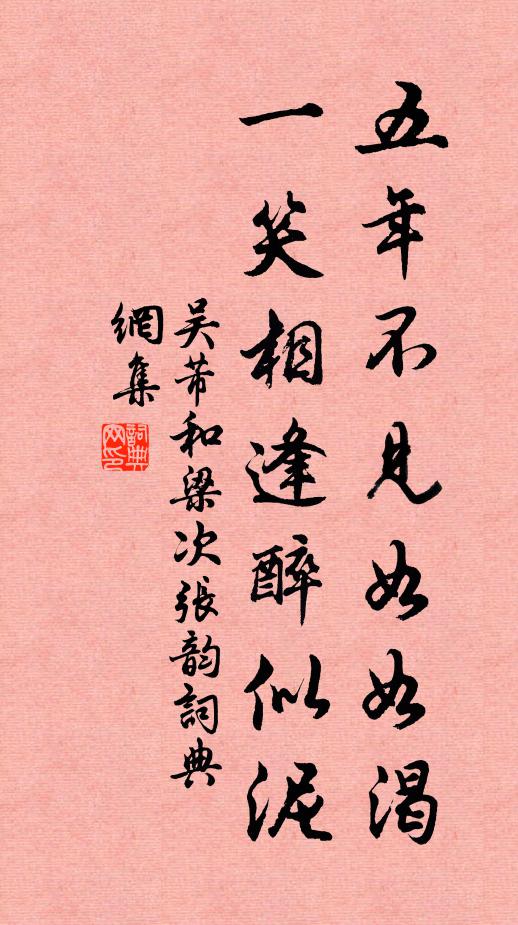 五年不見如如渴
一笑相逢醉似泥
吳芾和梁次張韵詞典
網集
詞典
网印